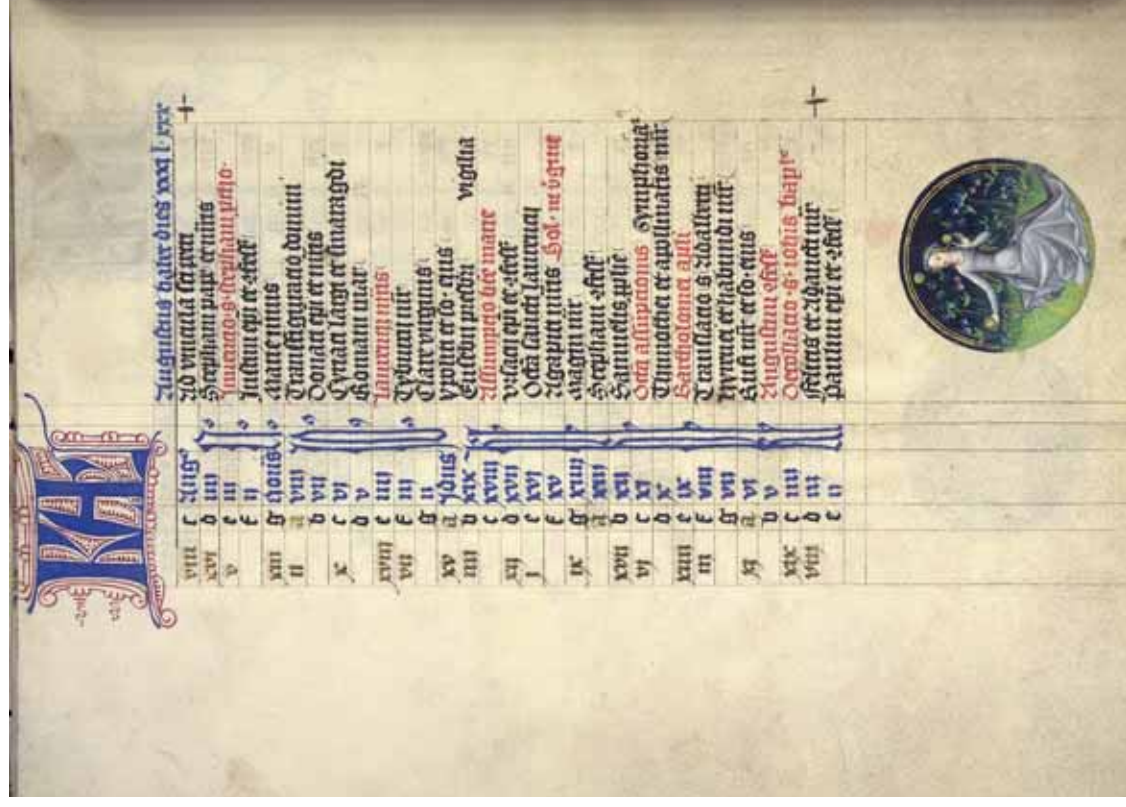 KL
Augustus habet dies xxxj l. xxx
viii c Aug' Ad vincula sci petri
xvi d iiij Stephani pape et mris
v e iij Inuencio s. stephani ptho.
f ij Justini epi et cfess
xiii g Nonis Marie niuis
ii a viij Transfiguracio domini
b vij Donati epi et mris
x c vj Cyriaci largi et smaragdi
d v Romani mar
xviii e iiij Laurencij mris
vii f iij Tyburcij mr
g ij Clare virginis
xv a Jdus Ypoliti et so. eius
iiii b xix Eusebij presbri vigilia
c xviij Assumpcio bte marie
xii d xvij epi et cfess
j e xvj Octa sancti laurencij
f xv Agapiti mris Sol. in virgine
ix g xiiij Magni mr
a xiij Stephani cfess
xvii b xij Samuelis pphe
vj c xj Octa assumpcionis Symphoria'
d x Timothei et appolinaris mr
xiiii e ix Bartholomei apli
iii f viij Translacio s. Adalberti
g vij Hyrenei et habundij mr
xj a vj Rufi mr et so. eius
b v Augustini cfess
xix c iiij Decollacio s. iohis bapt
viii d iij Felicis et Adaucti mr
e ij Paulini epi et cfess